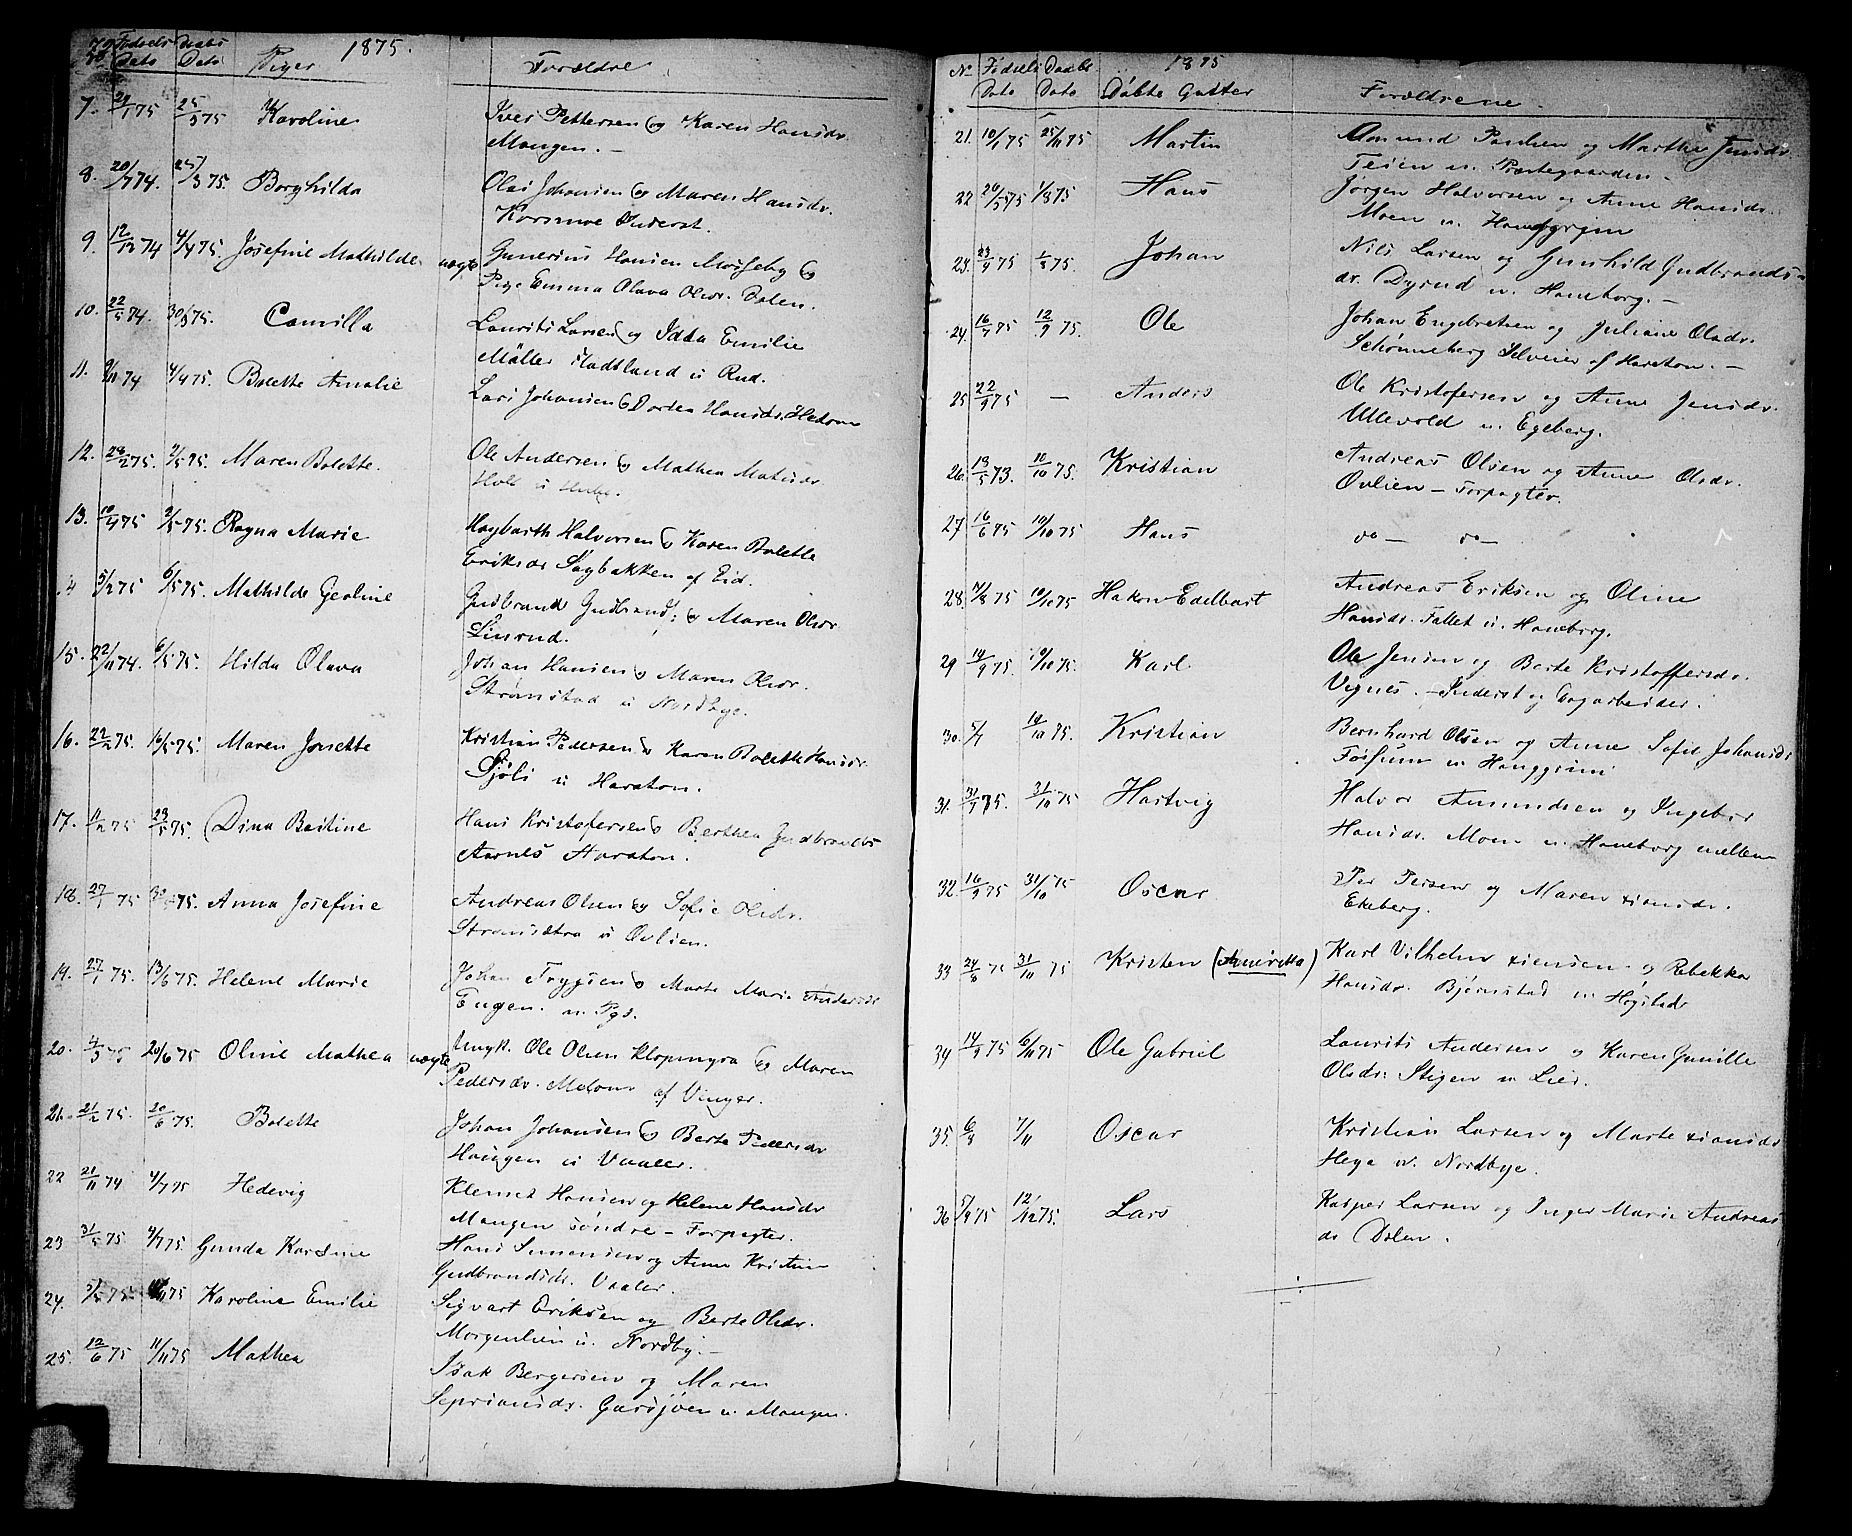 No Fødsels Dato Daabs Dato Piger 1875. Forældre
7. 24/1 75 25/3 75 Karoline Iver Pettersen og Karen Hansdr.
Mangen. —
8. 20/7 74. 25/3 75. Borghilda Olas Johansen og Maren Hansdr.
Korsmoe Inderst.
9. 12/12 74 4/4 75. Josefine Mathilde uægte Gunerius Hansen Morseby og
Pige Emma Olava Olsdr. Dalen.
10. 22/5 74. 30/3 75. Camilla Laurits Larsen og Idda Emilie
Møller Hadsland u Rud.
11. 9/11 74 4/4 75. Bolette Amalie Lars Johansen og Dorthea Hansdr. Hedom
12. 28/2 75. 2/5 75. Maren Bolette. Ole Andersen og Mathea Matisdr
Holt u
13. 10/4 75 2/5 75. Ragna Marie Hagbarth Halvorsen og Karen Bolette
Eriksdr Sagbakken af Eid.
.4 5/2 75 6/5 75. Mathilde Geoline Gudbrand Gudbrands: og Maren Olsdr.
Linrud.
15. 22/11 74. 6/5 75. Hilda Olava Johan Hansen og Maren Olsdr.
Strømstad u Nordbye.
16. 22/2 75. 16/5 75. Maren Josette Kristian Pedersen og Karen Bolette Hansdr.
Sjøli u Haraton.
17. 11/2 75 23/5 75. Dina Bastine Hans Kristofersen og Berthea Gudbrands
Aarnes Haraton.
18. 27/1 75 75. Anna Josefine Andreas Olsen og Sofie Olsdr.
Strømsætra u Ovlien.
19. 27/1 75. 13/6 75. Helene Marie Johan Trygsen og Marte Marie Andersdr
Engen. u. Pgd.
20. 4/3 75 20/6 75 Oline Mathea uægte Ungk. Ole Olsen Klopmyra og Maren
Pedersdr. Melom af Vinger.
21. 21/2 75. 20/6 75 Bolette Johan Johansen og Berte Pedersdr
Haugen u Vaaler.
22 21/11 74 4/7 75 Hedevig Klemet Hansen og Helene Hansdr
Mangen søndre — Forpagter.
23 31/5 75 4/7 75. Gunda Karsine Hans Simensen og Anne Kristine
Gudbrandsdr. Vaaler.
24. 3/5 75 /11 75 Karoline Emilie Sigvart Eriksen og Berte Olsdr.
Morgenlien u. Nordby. —
25. 12/6 75 11/11 75 Mathea Isak Bergersen og Maren
Sepriansdr. Garsjøen u. Mangen.
No Fødsels Dato Daabs Dato 1875 Døbte Gutter Forældrene
21. 10/1 75 25/11 75 Martin Amund Paulsen og Marthe Jensdr
Teien u. Præstegaarden —
22 20/5 75 1/8 75 Hans Jørgen Halvorsen og Anne Hansdr.
Moen u. Hanggrim
23. 23/4 75 1/8 75. Johan Nils Larsen og Gunhild Gudbrands-
dr. Dysrud u. Haneborg. —
24. 16/7 75 12/9 75. Ole Johan Engebretsen og Juliane Olsdr.
Schønneberg Selveier af Haraton. —
25 22/9 75 — Anders Ole Kristofersen og Anne Jensdr.
Ullevold u. Egeberg.
26. 13/5 73. 10/10 75. Kristian Andreas Olsen og Anne Olsdr.
Ovlien — Forpagter.
27 16/6 75 10/10 75 Hans do — do —
28. 7/8 75 10/10 75 Hakon Edelbart Andreas Eriksen og Oline
Hansdr. Fallet u. Haneborg.
29 14/9 75. 10/10 75. Karl. Ole Jensen og Berte Kristoffersdr.
Vignes. — Inderst og Dagarbeider.
30. 5/7 14/10 75. Kristian Bernhard Olsen og Anne Sofie Johansdr
Fossum u Hanggrim
31. 31/7 75. 31/10 75 Hartvig Halvor Amundsen og Ingebor
Hansdr. Moen u. Haneborg mellem
32. 16/9 75 31/10 75 Oscar Per Persen og Maren xiansdr.
Ekeberg.
33 24/8 75 31/10 75 Kristen (Amerika) Karl Vilhelm xiensen og Rebekka
Hansdr. Bjørnstad u Høgstad
34 14/9 75 6/11 75 Ole Gabriel Laurits Andersen og Karen Gunille
Olsdr. Stigen u Lier.
35. 6/8 7/11 Oscar Kristian Larsen og Marte xiansdr
Heya u. Nordbye.
36 5/9 75 12/12 75. Lars Kasper Larsen og Inger Marie Andreas
dr Dalen.